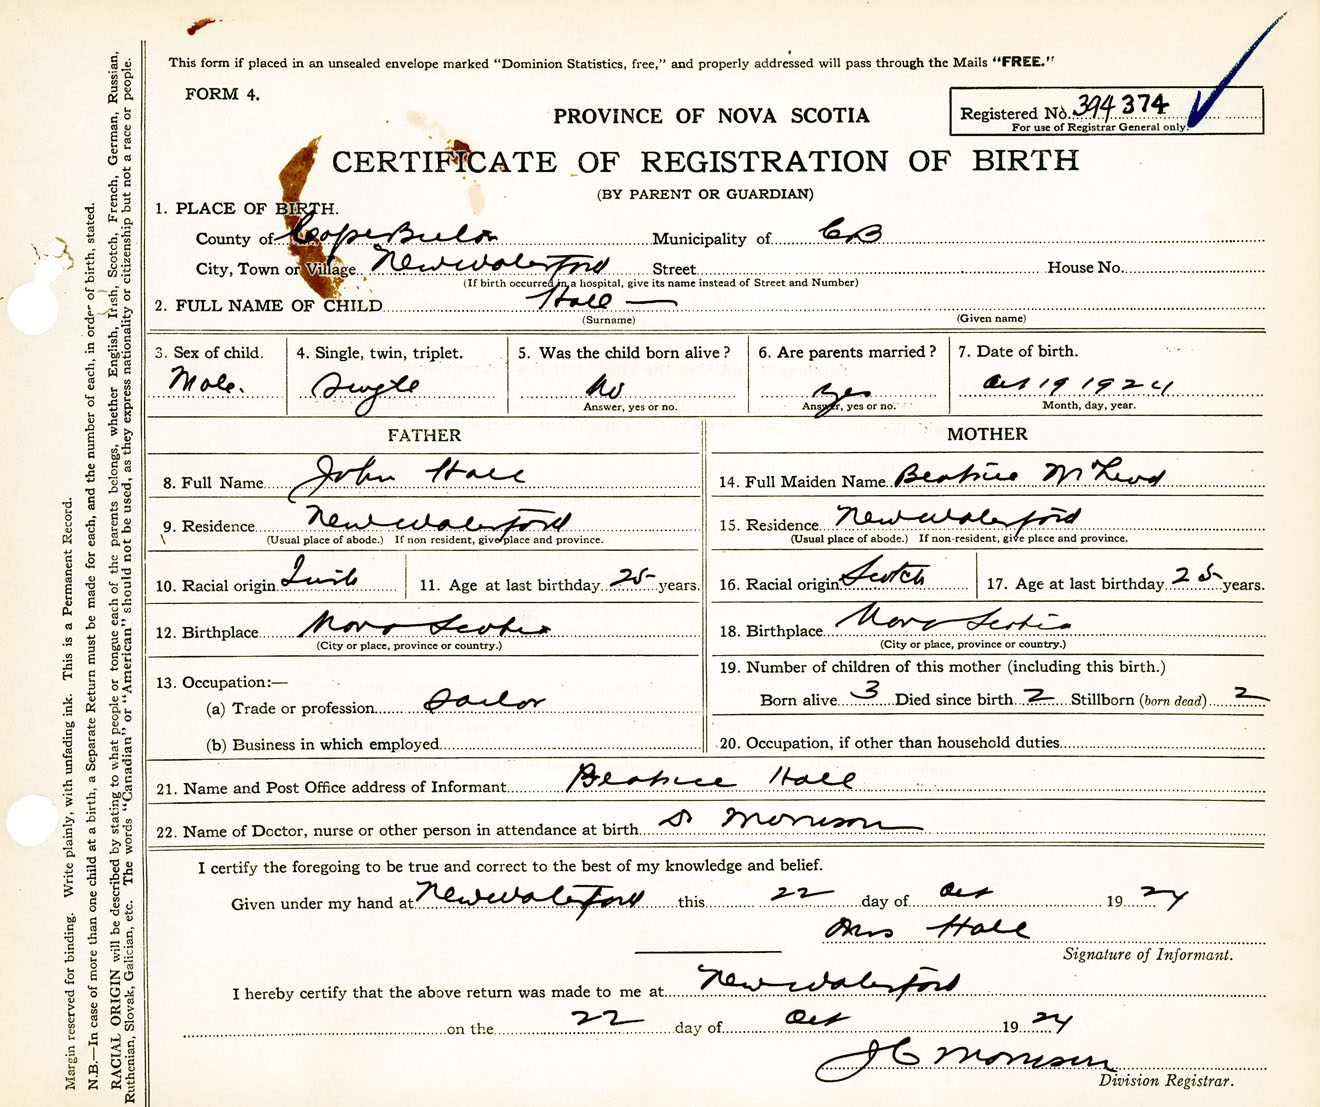 This form if placed in an unsealed envelope marked "Dominion Statistics, free," and properly addressed will pass through the Mails "FREE."
FORM 4.
PROVINCE OF NOVA SCOTIA
Registered No. 394 374
For use of Registrar General only.
CERTIFICATE OF REGISTRATION OF BIRTH
(BY PARENT OR GUARDIAN)
1. PLACE OF BIRTH.
County of Cape Breton Municipality of CB
City, Town or Village New Waterford Street House No.
(If birth occurred in a hospital, give its name instead of Street and Number)
2. FULL NAME OF CHILD Hall —
(Surname) (Given name)
3. Sex of child. 4. Single, twin, triplet. 5. Was the child born alive? 6. Are parents married? 7. Date of birth.
Male. Single No yes Oct 19 1924
Answer, yes or no. Answer, yes or no. Month, day, year.
FATHER MOTHER
8. Full Name John Hall 14. Full Maiden Name Beatrice McLeod
9. Residence New Waterford 15. Residence New Waterford
(Usual place of abode.) If non resident, give place and province. (Usual place of abode.) If non-resident, give place and province.
10. Racial origin 11. Age at last birthday 25 years. 16. Racial origin Scotch 17. Age at last birthday 25 years.
12. Birthplace Nova Scotia 18. Birthplace Nova Scotia
(City or place, province or country.) (City or place, province or country.)
13. Occupation:— 19. Number of children of this mother (including this birth.)
(a) Trade or profession Sailor Born alive 3 Died since birth 2 Stillborn (born dead) 2
(b) Business in which employed 20. Occupation, if other than household duties
21. Name and Post Office address of Informant Beatrice Hall
22. Name of Doctor, nurse or other person in attendance at birth Dr Morrison
I certify the foregoing to be true and correct to the best of my knowledge and belief.
Given under my hand at New Waterford this 22 day of Oct 19 24
Mrs Hall
Signature of Informant.
I hereby certify that the above return was made to me at New Waterford
on the 22 day of Oct 19 24
J C Morrison
Division Registrar.
Margin reserved for binding. Write plainly, with unfading ink. This is a Permanent Record.
N.B.—In case of more than one child at a birth, a Separate Return must be made for each, and the number of each, in order of birth, stated.
RACIAL ORIGIN will be described by stating to what people or tongue each of the parents belongs, whether English, Irish, Scotch, French, German, Russian,
Ruthenian, Slovak, Galician, etc. The words "Canadian" or "American" should not be used, as they express nationality or citizenship but not a race or people.